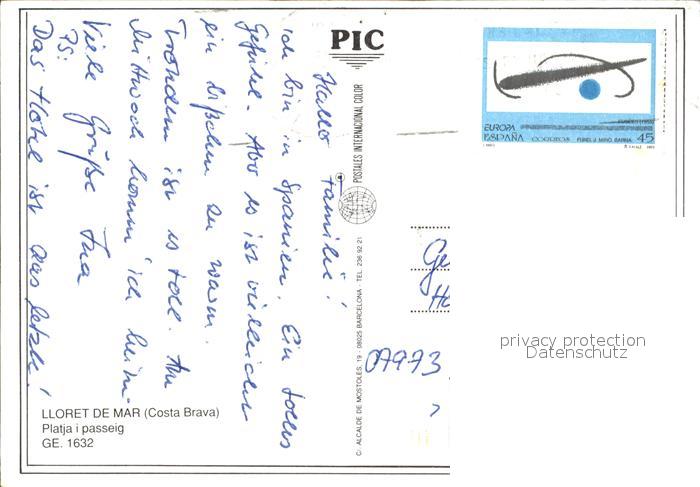 Hallo Familie!
Ich bin in Spanien. Ein tolles
Gefühl. Aber es ist vielleicht
ein bißchen zu warm.
Trotzdem ist es toll. Am
Mittwoch komm' ich heim.
Viele Grüße Ina
PS:
Das Hotel ist das letzte!
LLORET DE MAR (Costa Brava)
Platja i passeig
GE. 1632
PIC
POSTALES INTERNATIONAL COLOR
C/ ALCALDE DE MOSTOLES, 19 - 08025 BARCELONA - TEL. 236 92 21
EUROPA
ESPAÑA CORREOS 45
Ge
Ha
07973
privacy protection
Datenschutz